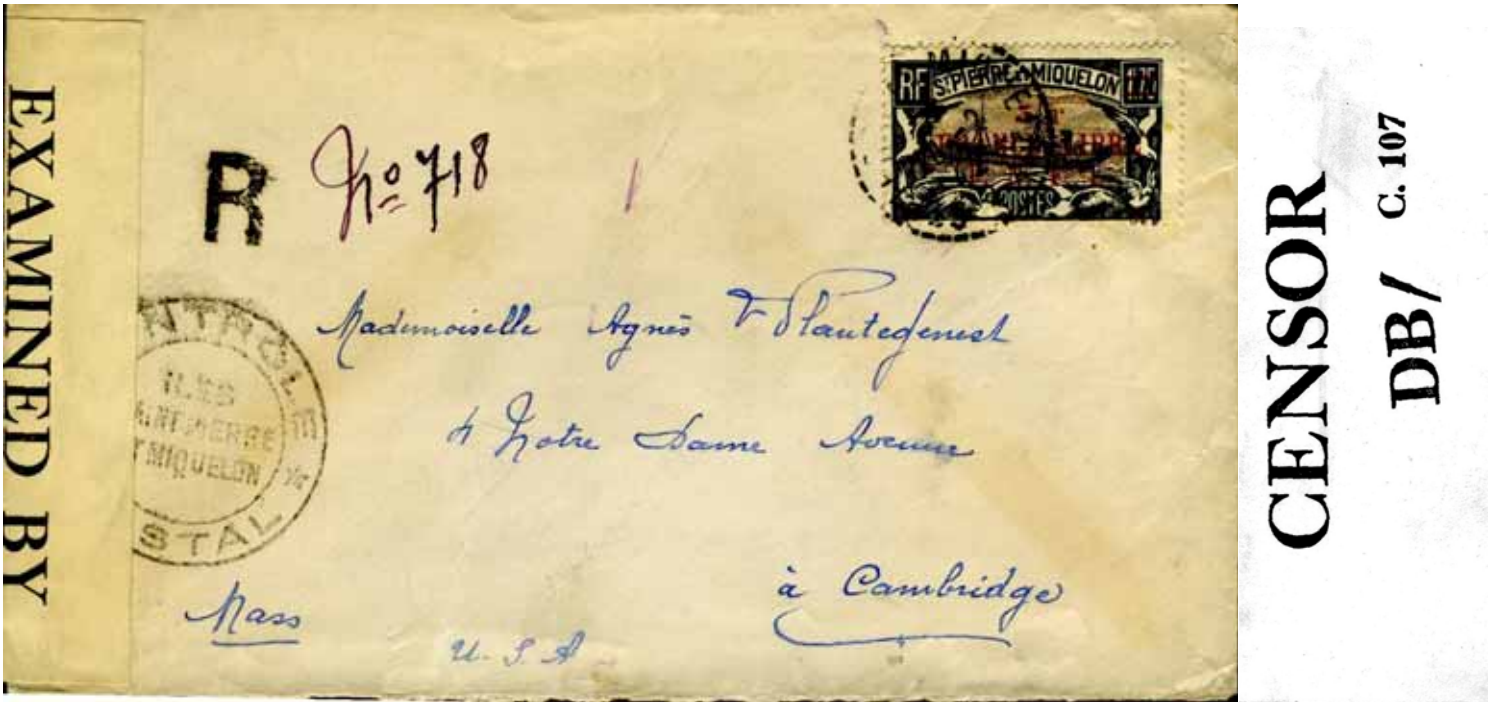 EXAMINED BY
R
No 718
RF ST PIERRE & MIQUELON
POSTES
NTROLE
ILES
INT PIERRE
T MIQUELON
STAL
Mademoiselle Agnès Plantegenest
4 Notre Dame Avenue
à Cambridge
Mass
U.S.A
CENSOR
DB/ C. 107